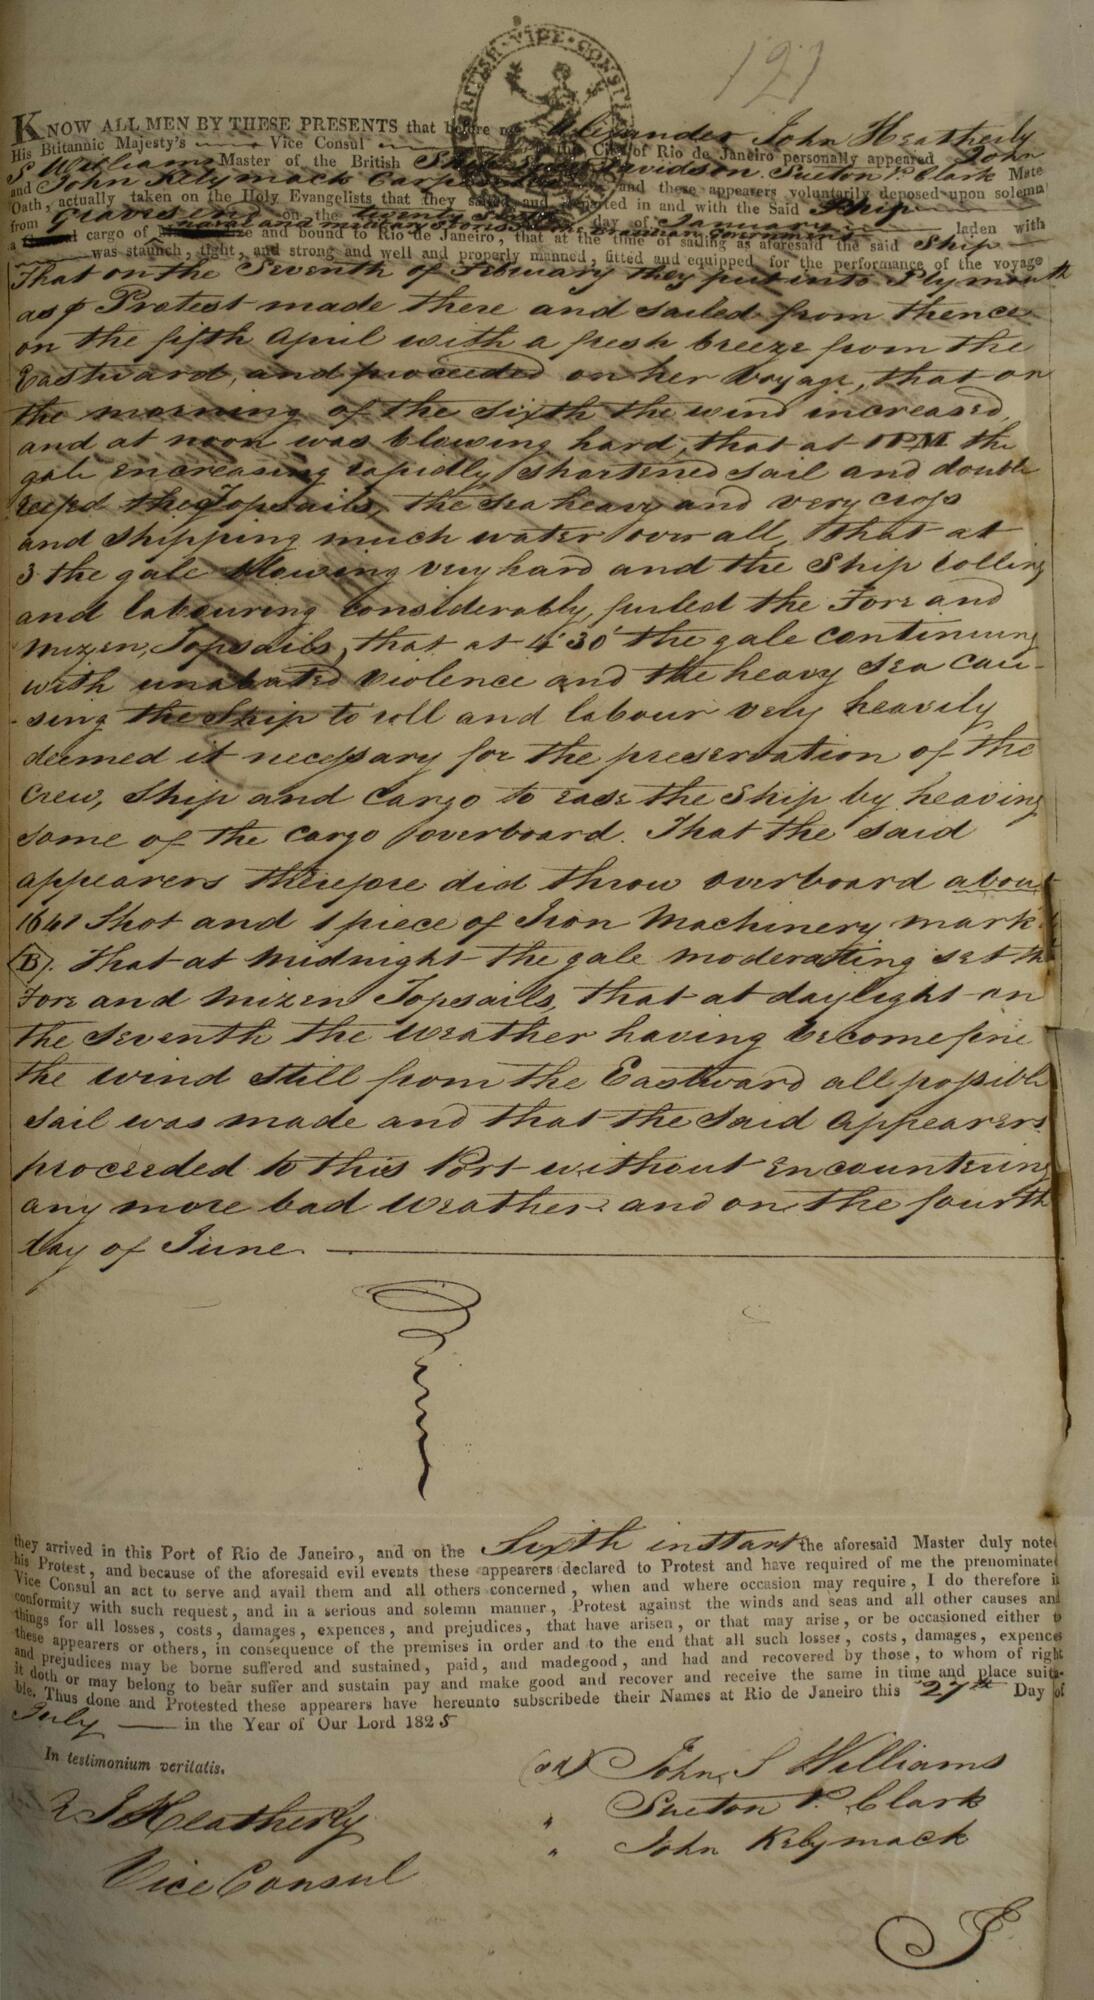 BRITISH · VICE · CONSUL
121
KNOW ALL MEN BY THESE PRESENTS that before me Alexander John Heatherly
His Britannic Majesty's Vice Consul the City of Rio de Janeiro personally appeared John
S Williams Master of the British Ship Davidson. Sueton P. Clark Mate
and John Kelymack Carpenter and these appearers voluntarily deposed upon solemn
Oath, actually taken on the Holy Evangelists that they sailed and departed in and with the Said Ship
from Gravesend on the twenty day of January laden with
a cargo of naval and military stores Brazilian Government and bound to Rio de Janeiro, that at the time of sailing as aforesaid the said Ship
was staunch, tight, and strong and well and properly manned, fitted and equipped for the performance of the voyage
That on the Seventh of February they put into Plymouth
as ⅌ Protest made there and sailed from thence
on the fifth April with a fresh breeze from the
Eastward, and proceeded on her Voyage, that on
the morning of the sixth the wind increased
and at noon was blowing hard, that at 1 PM the
gale encreasing rapidly shortened sail and double
reefed the Topsails, the sea heavy and very cross
and shipping much water over all, that at
3 the gale blowing very hard and the Ship rolling
and labouring considerably, furled the Fore and
Mizen, Topsails, that at 4'30' the gale continuing
with unabated violence and the heavy sea cau-
-sing the Ship to roll and labour very heavily
deemed it necessary for the preservation of the
Crew, Ship and Cargo to ease the Ship by heaving
some of the Cargo overboard. That the said
appearers therefore did throw overboard about
1641 Shot and 1 piece of Iron Machinery mark
B. That at Midnight the gale moderating set the
Fore and Mizen Topsails, that at daylight on
the Seventh the Weather having become fine
the wind still from the Eastward all possible
sail was made and that the said Appearers
proceeded to this Port without encountering
any more bad Weather and on the fourth
day of June
they arrived in this Port of Rio de Janeiro, and on the Sixth instant the aforesaid Master duly noted
his Protest, and because of the aforesaid evil events these appearers declared to Protest and have required of me the prenominated
Vice Consul an act to serve and avail them and all others concerned, when and where occasion may require, I do therefore in
conformity with such request, and in a serious and solemn manner, Protest against the winds and seas and all other causes and
things for all losses, costs, damages, expences, and prejudices, that have arisen, or that may arise, or be occasioned either to
these appearers or others, in consequence of the premises in order and to the end that all such losses, costs, damages, expences
and prejudices may be borne suffered and sustained, paid, and madegood, and had and recovered by those, to whom of right
it doth or may belong to bear suffer and sustain pay and make good and recover and receive the same in time and place suita-
ble. Thus done and Protested these appearers have hereunto subscribede their Names at Rio de Janeiro this 27th Day of
July in the Year of Our Lord 1825
In testimonium veritatis.
John S Williams
Sueton P. Clark
John Kelymack
J Heatherly
Vice Consul